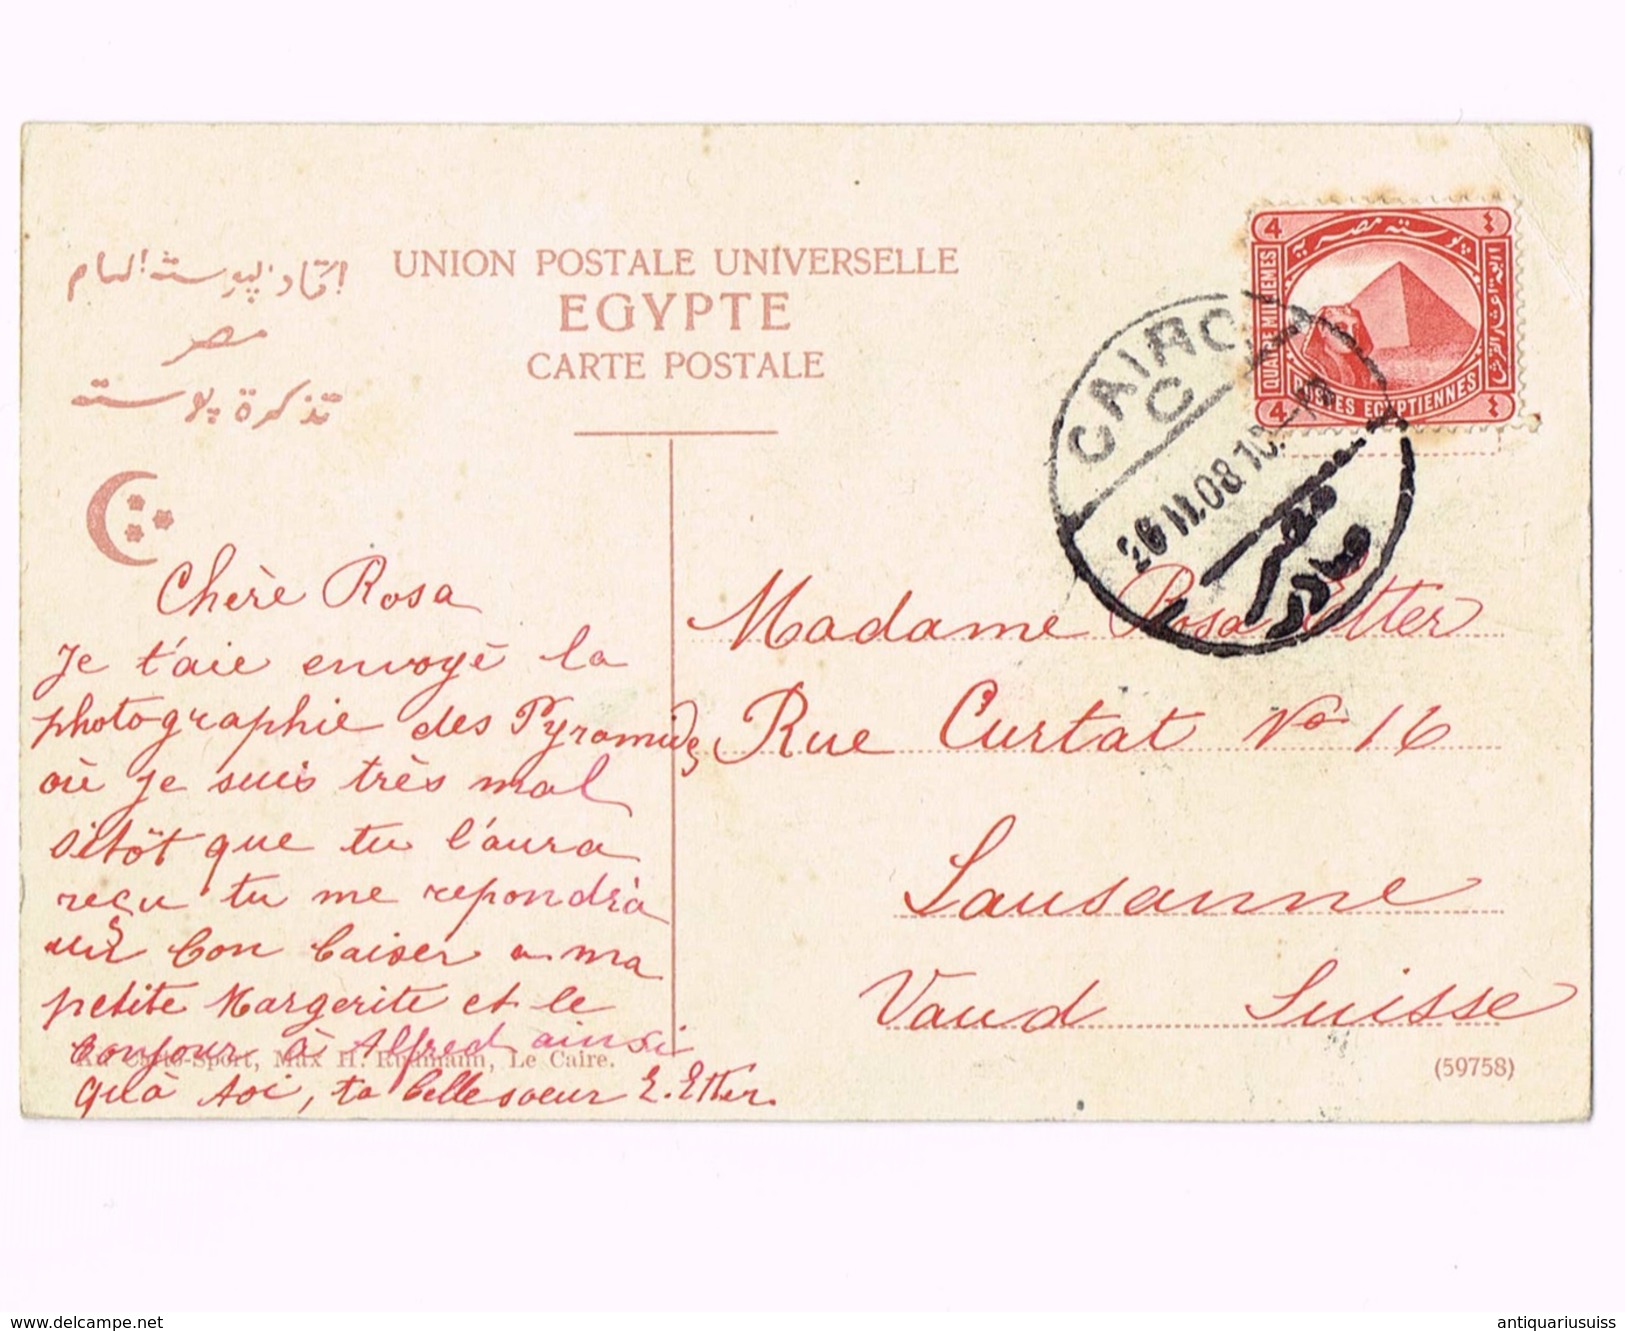 اتحاد البوسته العام
مصر
تذكرة بوسته
UNION POSTALE UNIVERSELLE
EGYPTE
CARTE POSTALE
4
٤
بوسته مصرية
QUATRE MILLIEMES
POSTES EGYPTIENNES
4
٤
CAIRO
C
26 II.08 10
Chère Rosa
Je t'aie envoyé la
photographie des Pyramides
où je suis très mal
sitôt que tu l'aura
reçu tu me repondrà
un bon baiser a ma
petite Margerite et le
bonjour à Alfred ainsi
qu'à toi, ta belle soeur E. Etter.
Au Carto-Sport, Max H. Rudmann, Le Caire.
Madame Rosa Etter
Rue Curtat No 16
Lausanne
Vaud Suisse
(59758)
www.delcampe.net
antiquariusuiss